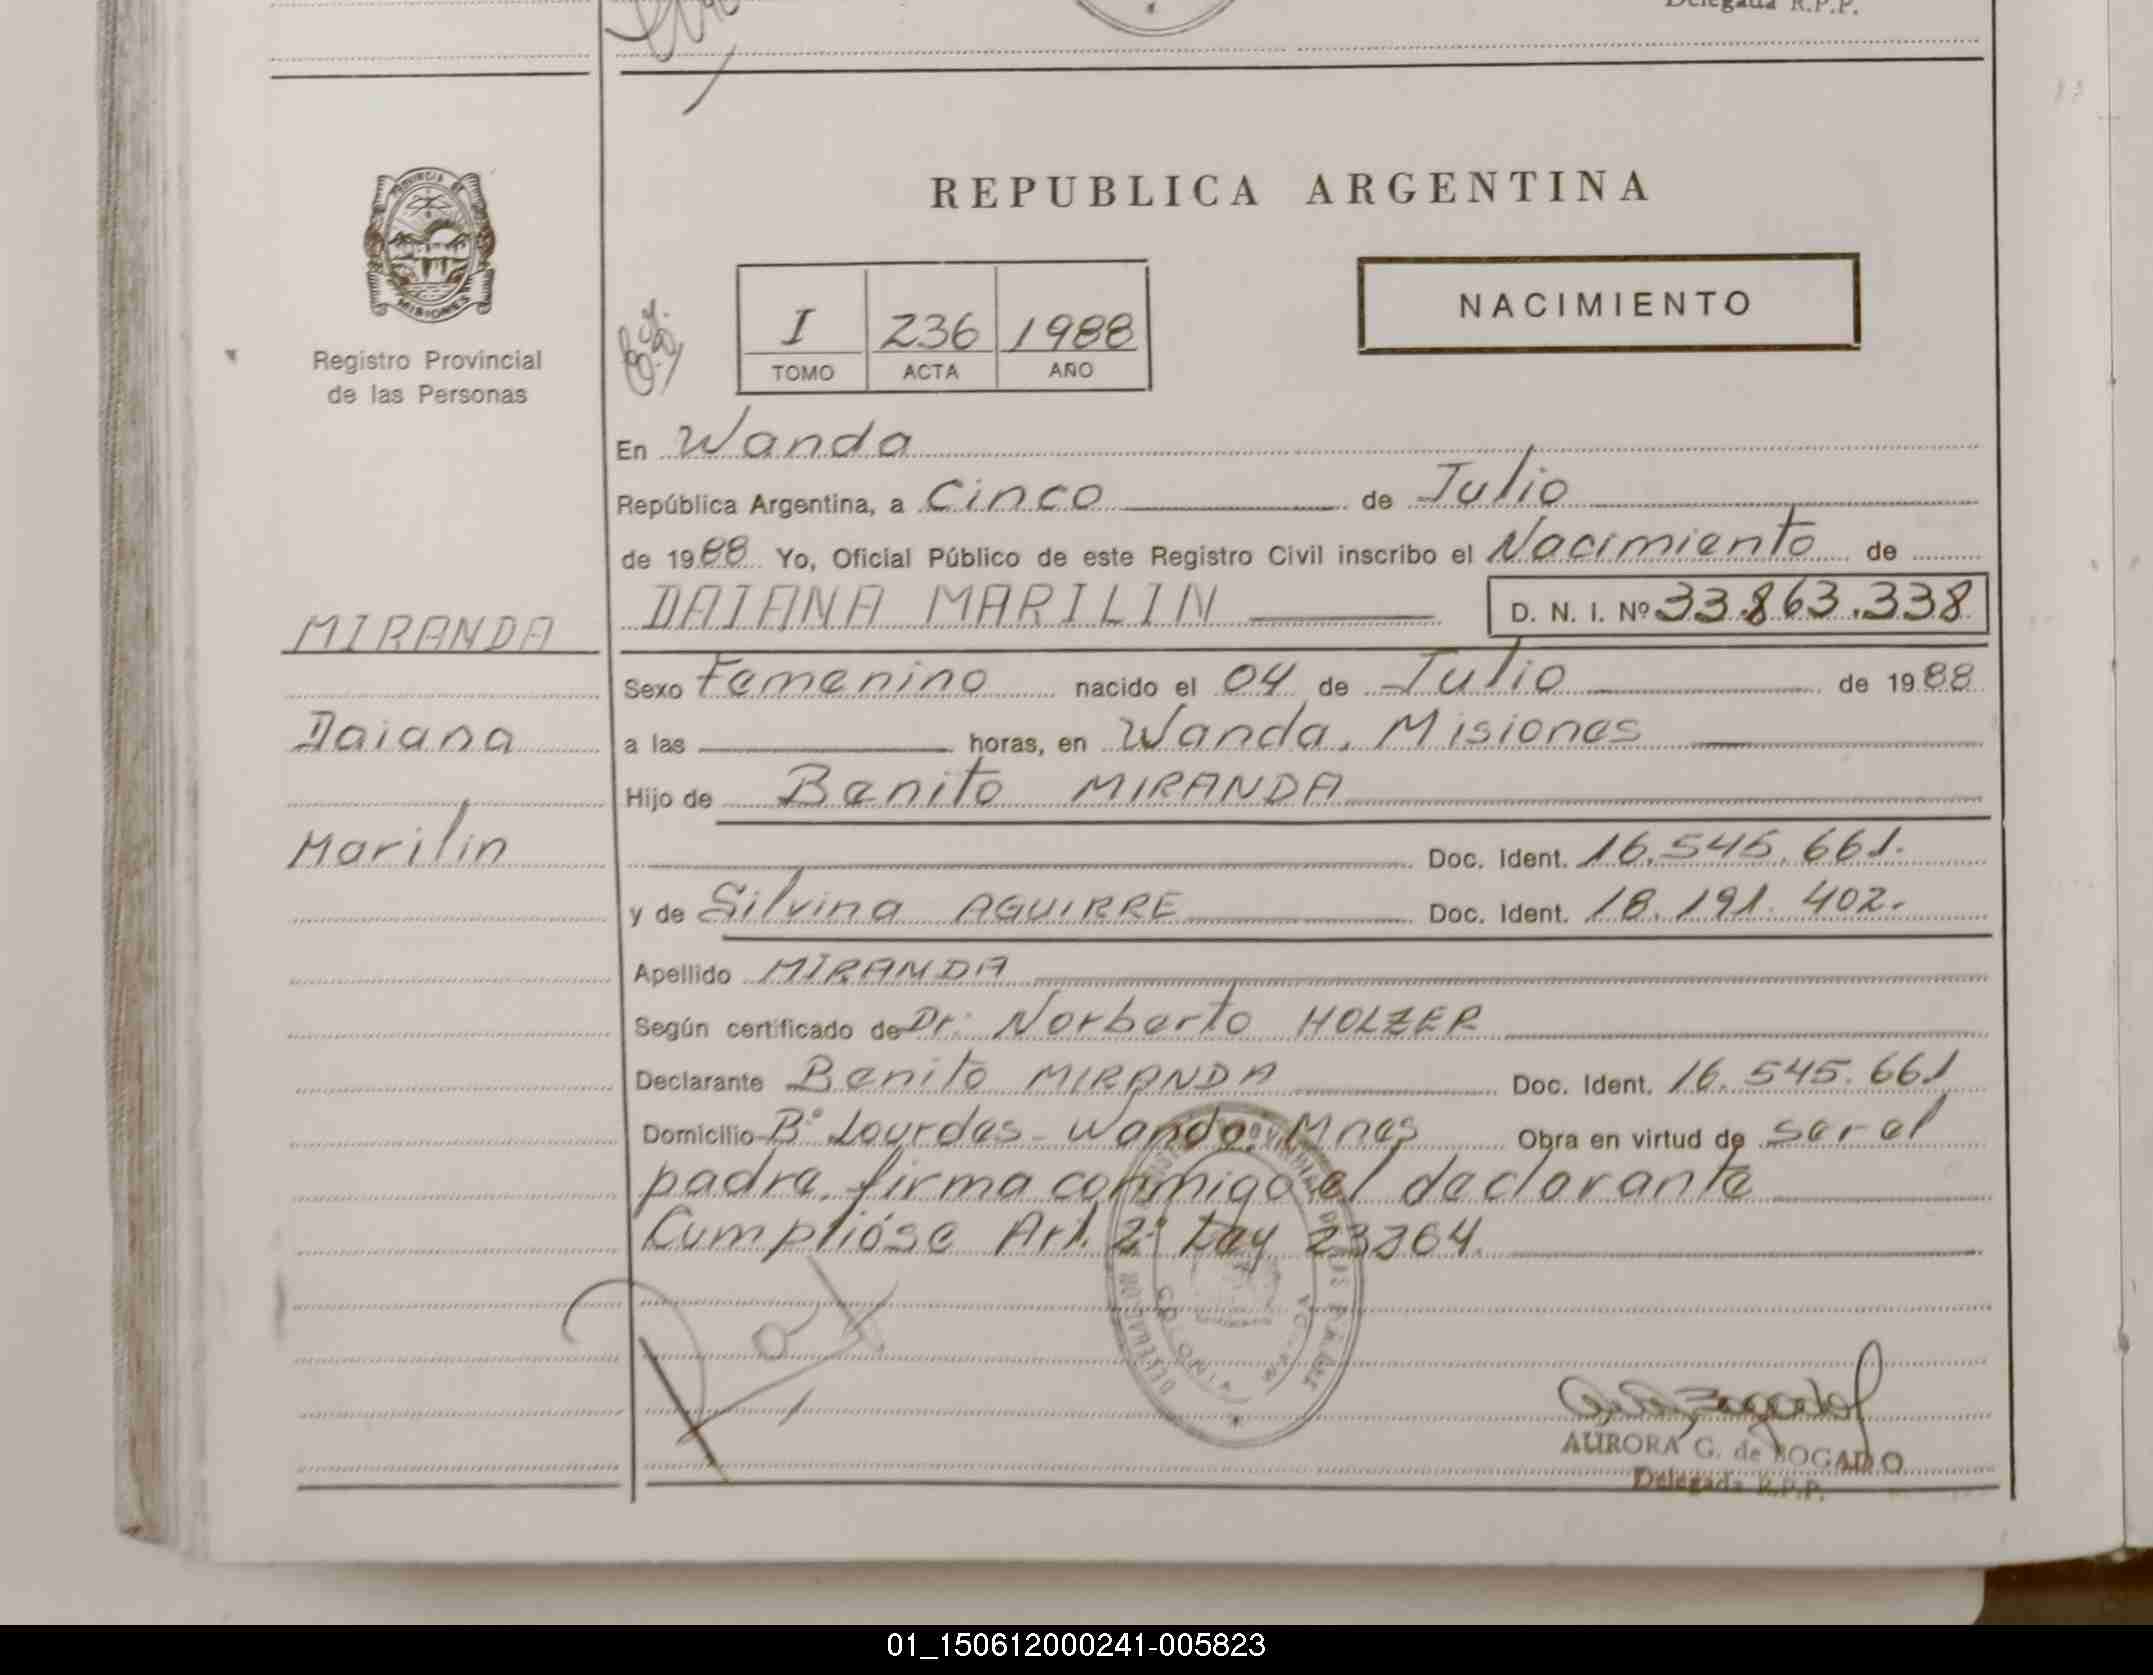 Delegada R.P.P.
PROVINCIA DE
MISIONES
Registro Provincial
de las Personas
REPUBLICA ARGENTINA
NACIMIENTO
I 236 1988
TOMO ACTA AÑO
En Wanda
República Argentina, a Cinco de Julio
de 1988 Yo, Oficial Público de este Registro Civil inscribo el Nacimiento de
MIRANDA
Daiana
Marilin
DAIANA MARILIN D. N. I. Nº 33.863.338
Sexo Femenino nacido el 04 de Julio de 1988
a las horas, en Wanda, Misiones
Hijo de Benito MIRANDA
Doc. Ident. 16.545.661.
y de Silvina AGUIRRE Doc. Ident. 18.191.402.
Apellido MIRANDA
Según certificado de Dr. Norberto HOLZER
Declarante Benito MIRANDA Doc. Ident. 16.545.661
Domicilio Bº Lourdes - Wanda, Mnes Obra en virtud de ser el
padre, firma conmigo el declarante
Cumplióse Art. 2º Ley 23264.
AURORA G. de BOGADO
Delegada R.P.P.
01_150612000241-005823